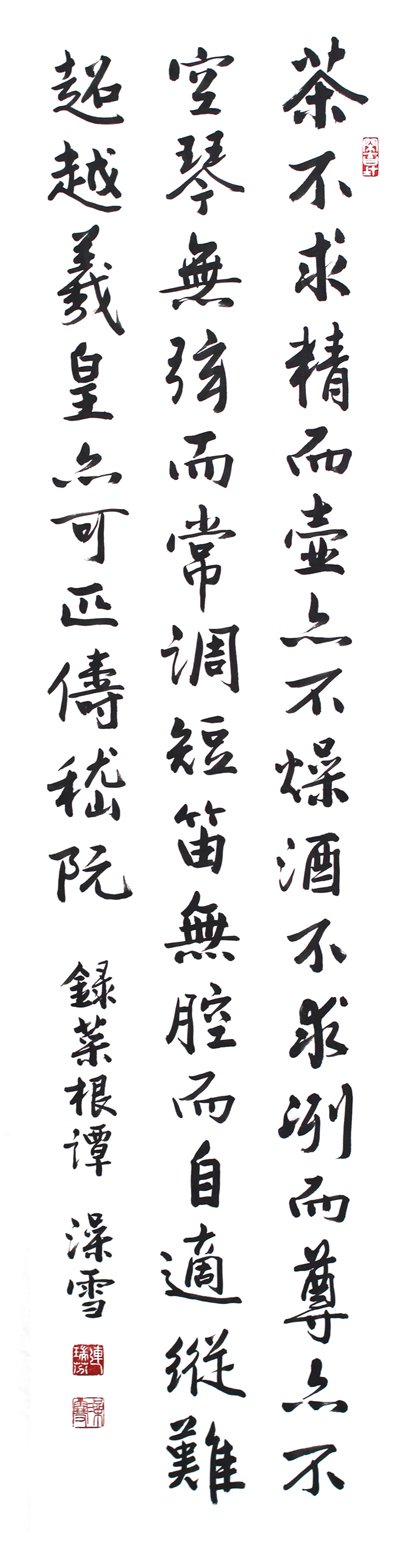 茶不求精而壺亦不燥酒不求冽而尊亦不
空琴無弦而常調短笛無腔而自適縱難
超越羲皇亦可匹儔嵇阮
錄菜根譚 澡雪